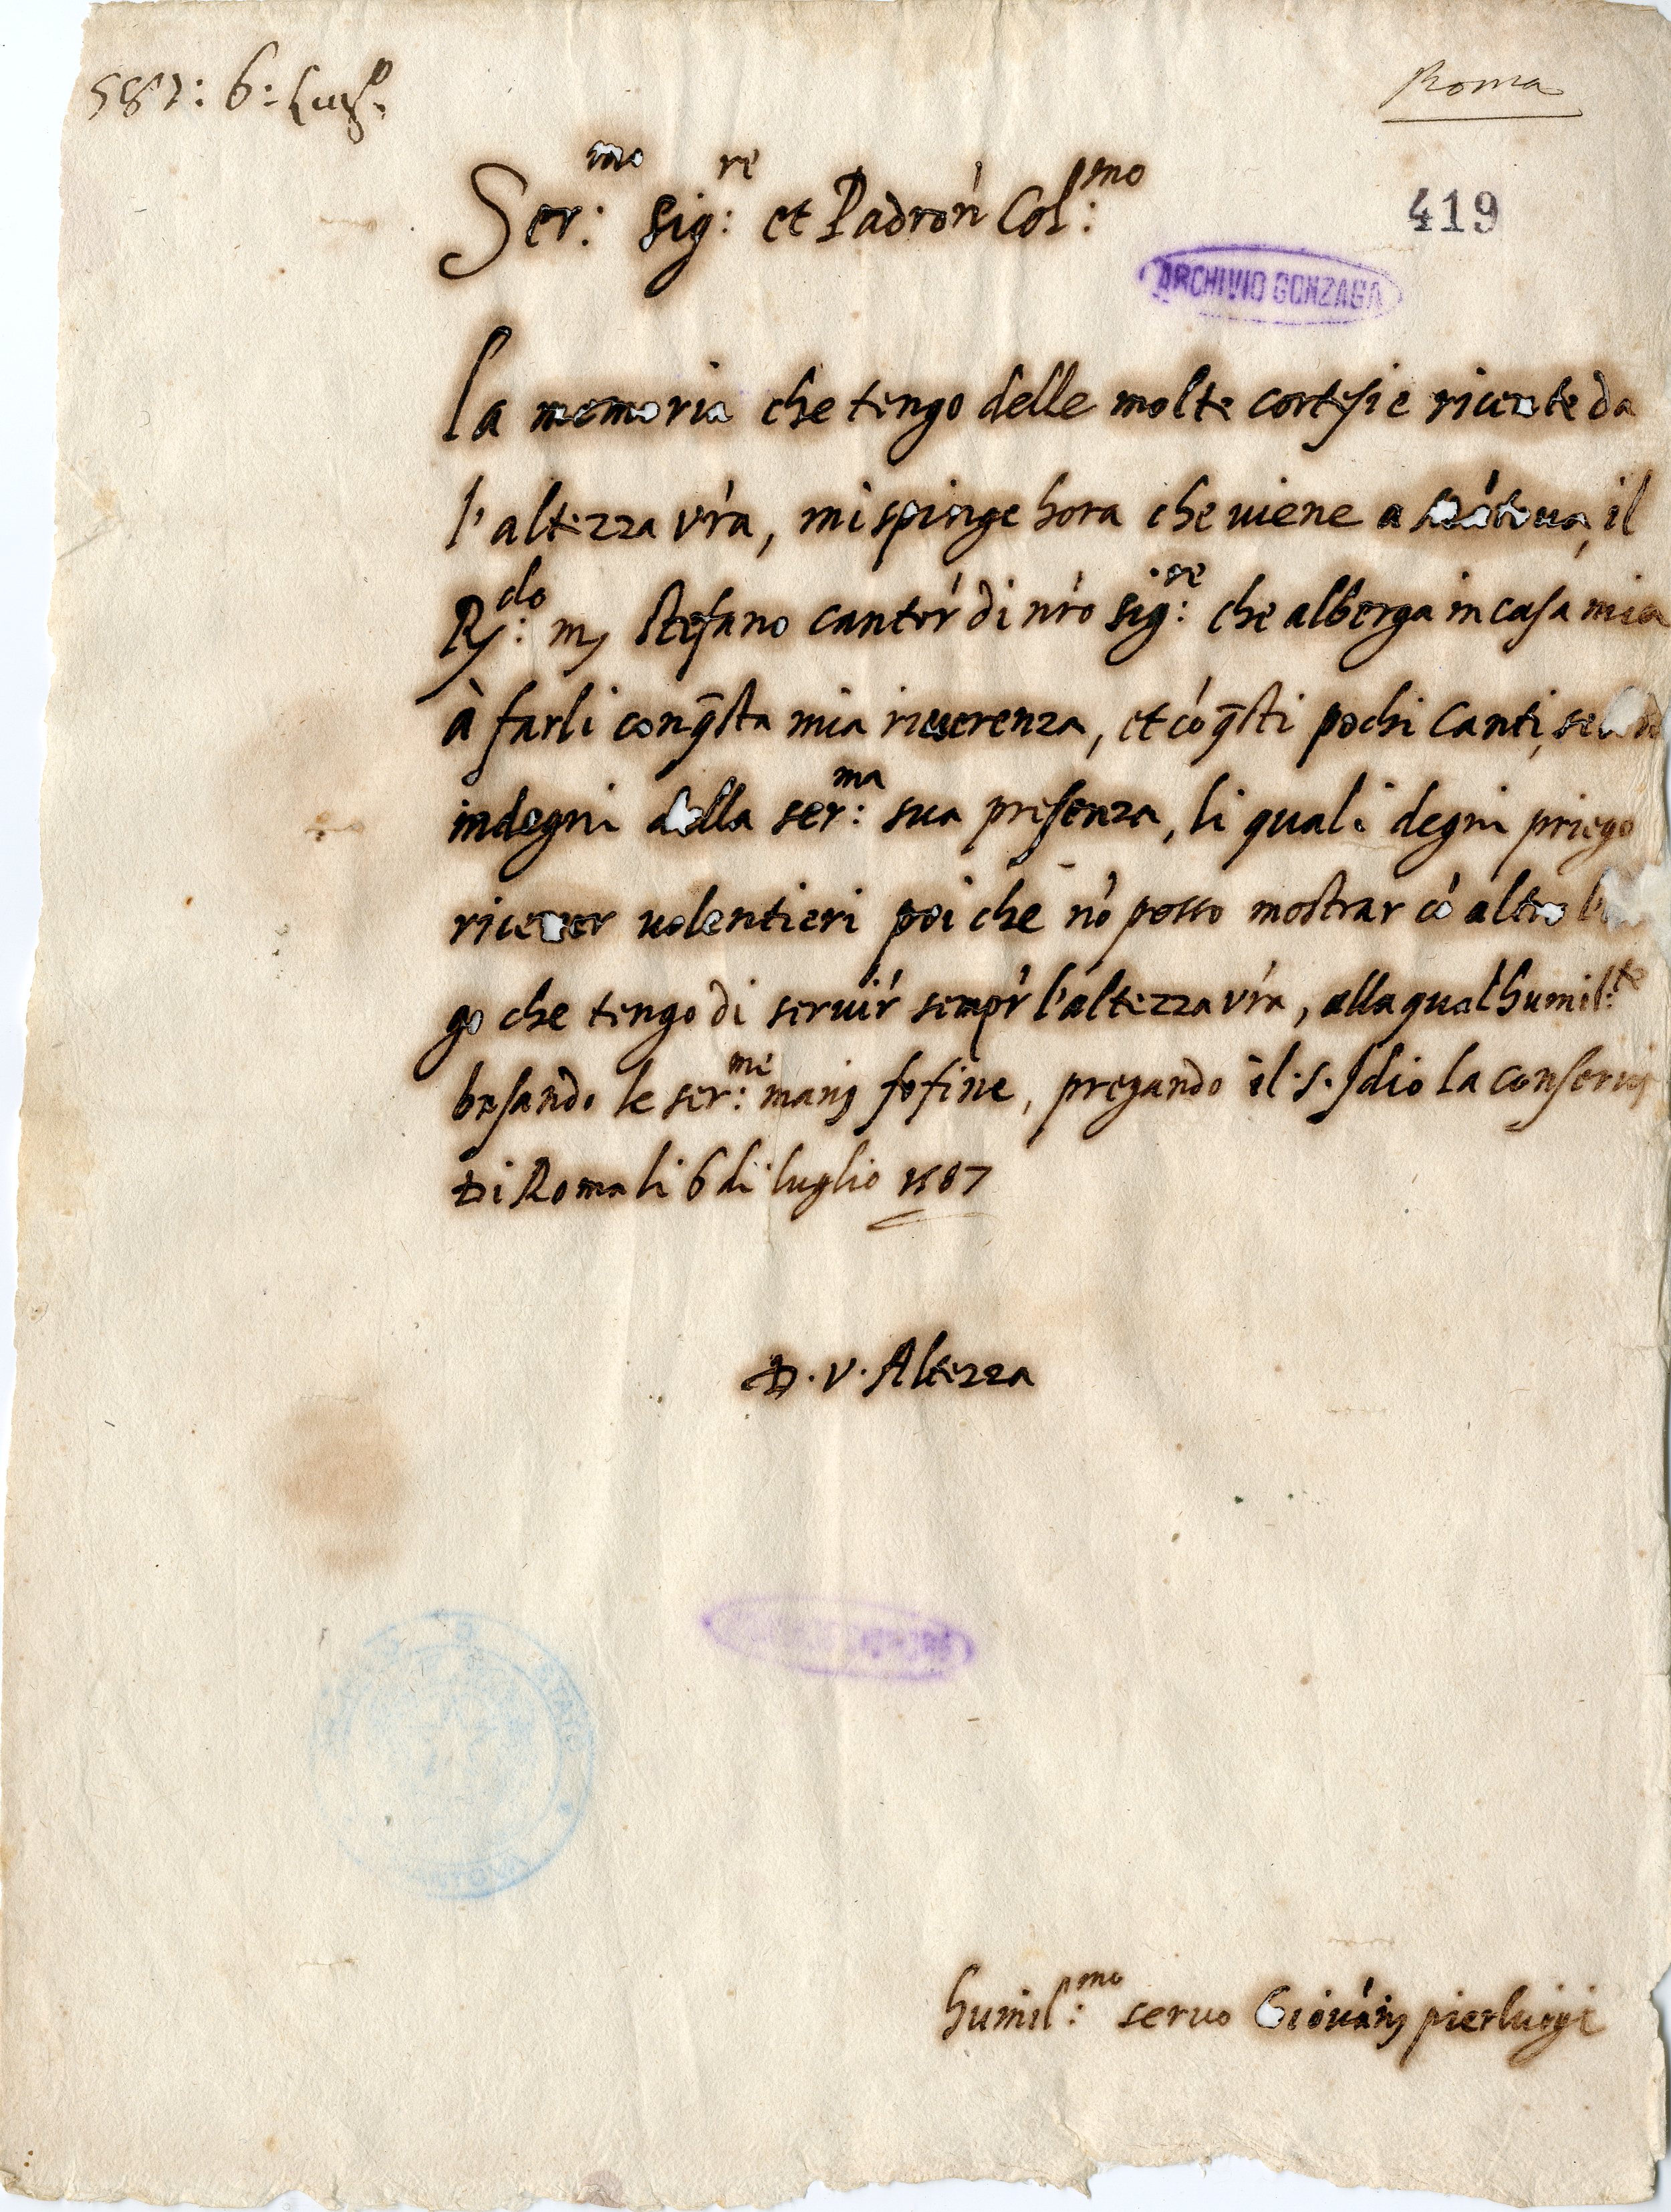 587: 6: Lug.º
Roma
Ser:mo Sig:re et Padron Col:mo
419
ARCHIVIO GONZAGA
La memoria che tengo delle molte cortesie riceute da
l'altezza vra, mi spinge hora che viene a Mátoua, il
R:do m Stefano cantor di nro sig:re che alberga in casa mia
à farli con q̄sta mia riuerenza, et có q̄sti pochi Canti,
indegni della ser:ma sua presenza, li quali degni priego
riceuer uolentieri poi che nó posso mostrar có altro
go che tengo di seruir sempr l'altezza vra, alla qual humil:te
basando le ser:me mani fo fine, pregando il .s. Idio la conserui
Di Roma li 6 di luglio 1587
D. V. Altezza
humil:mo seruo Giouáni pierluigi